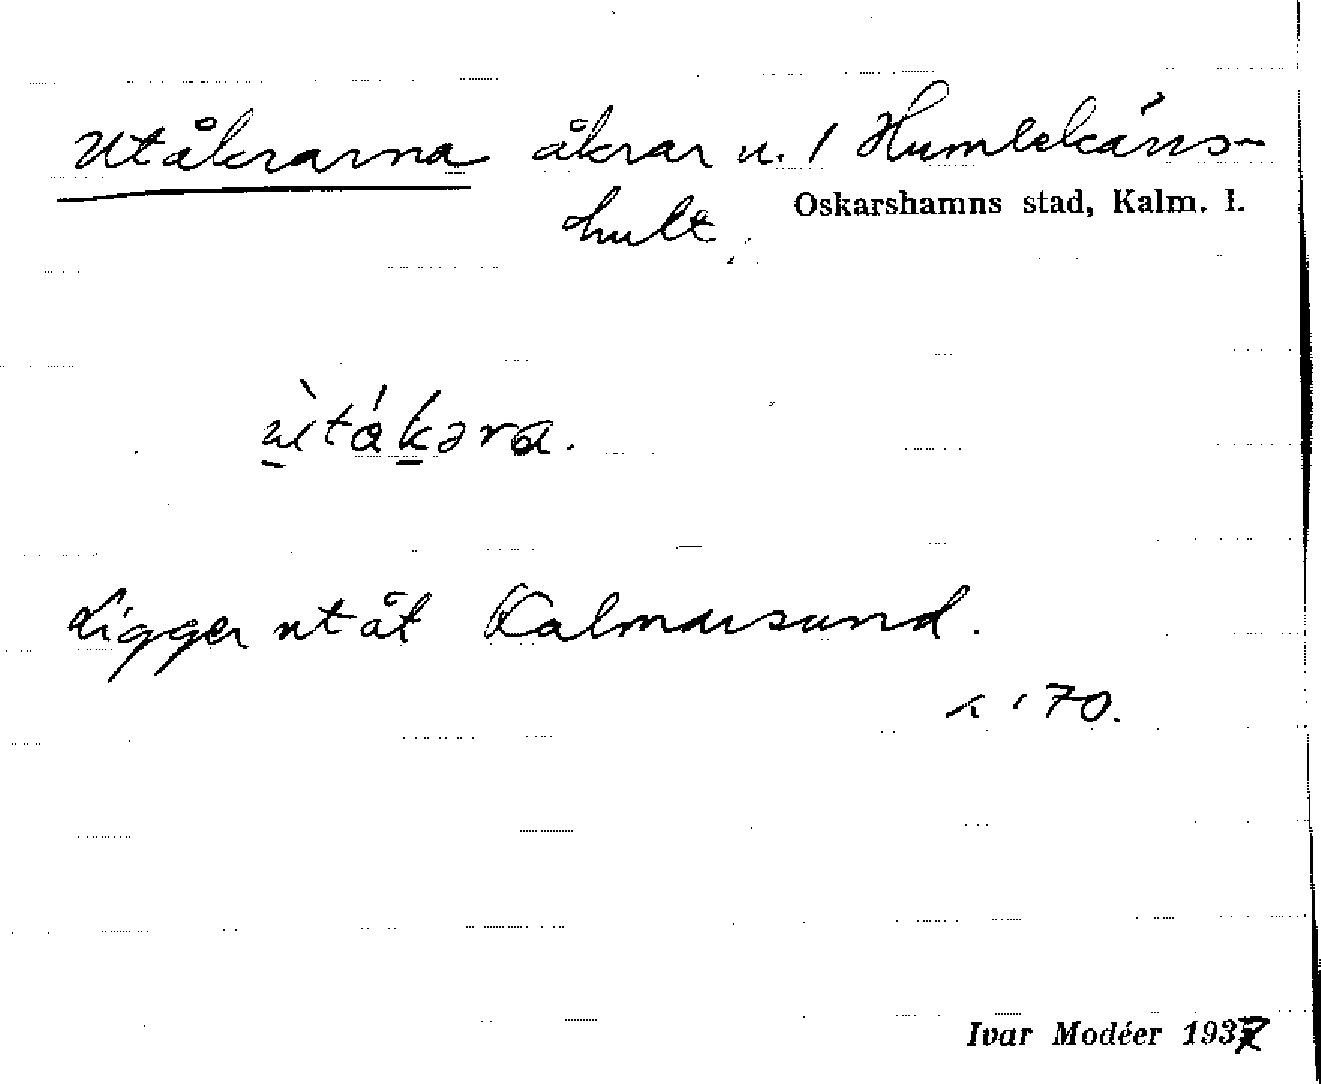 Utåkrarna åkrar u. 1 Humlekärrs-
hult.
Oskarshamns stad, Kalm. l.
ùtákəra.
Ligger utåt Kalmarsund.
70.
Ivar Modéer 1937